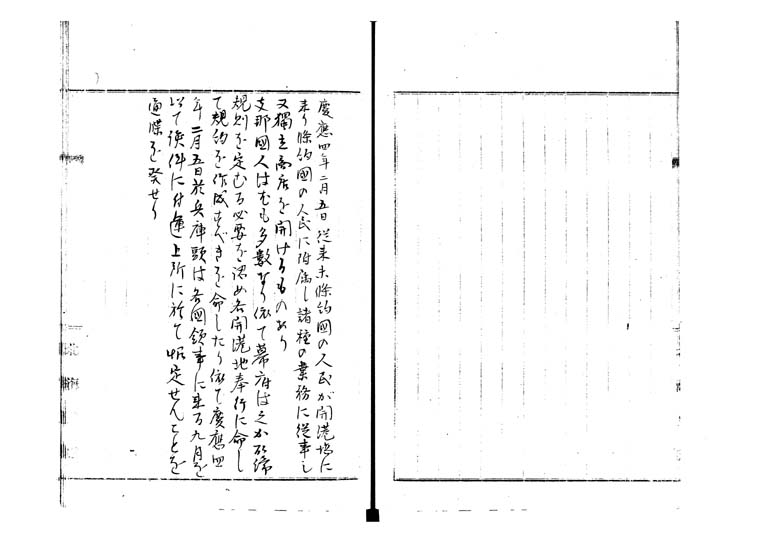 慶應四年二月五日従来未條約國の人民が開港場に
来り條約國の人民に附属し諸種の業務に従事し
又獨立商店を開けるものあり
支那國人は尤も多数なり依て幕府は之が取締
規則を定むる必要を認め各開港地奉行に命し
て規約を作成すべきを命したり依て慶應四
年二月五日於兵庫頭は各國領事に来る九月を
以て該件に付運上所に於て協定せんことを
通牒を発せり